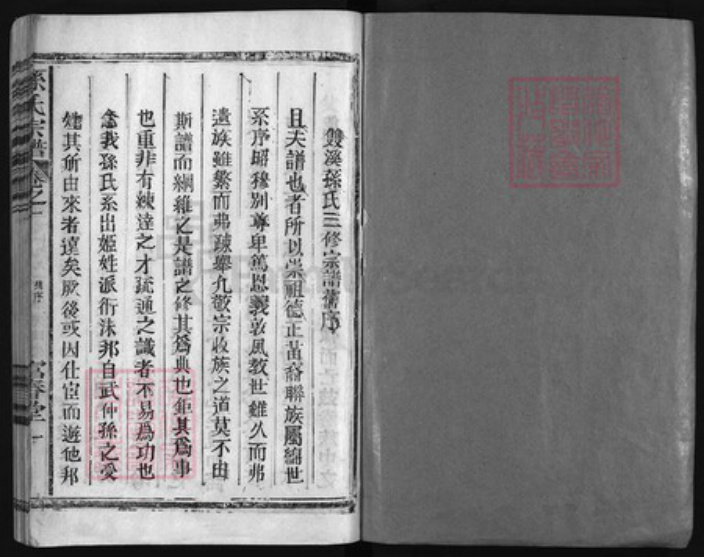 雙溪孫氏三修宗譜舊序
且夫譜也者所以崇祖德正苗裔聯族屬綿世
系序昭穆別尊卑篤恩義敦風教世雖久而弗
遺族雖繁而弗踈舉凡敬宗收族之道莫不由
斯譜而綱維之是譜之修其為典也鉅其為事
也重非有練達之才疏通之識者不易為功也
念我孫氏系出姬姓派衍沬邦自武仲孫之受
姓其所由來者遠矣厥後或因仕宦而遊他邦
孫氏宗譜
卷之一
舊序
富春堂
一